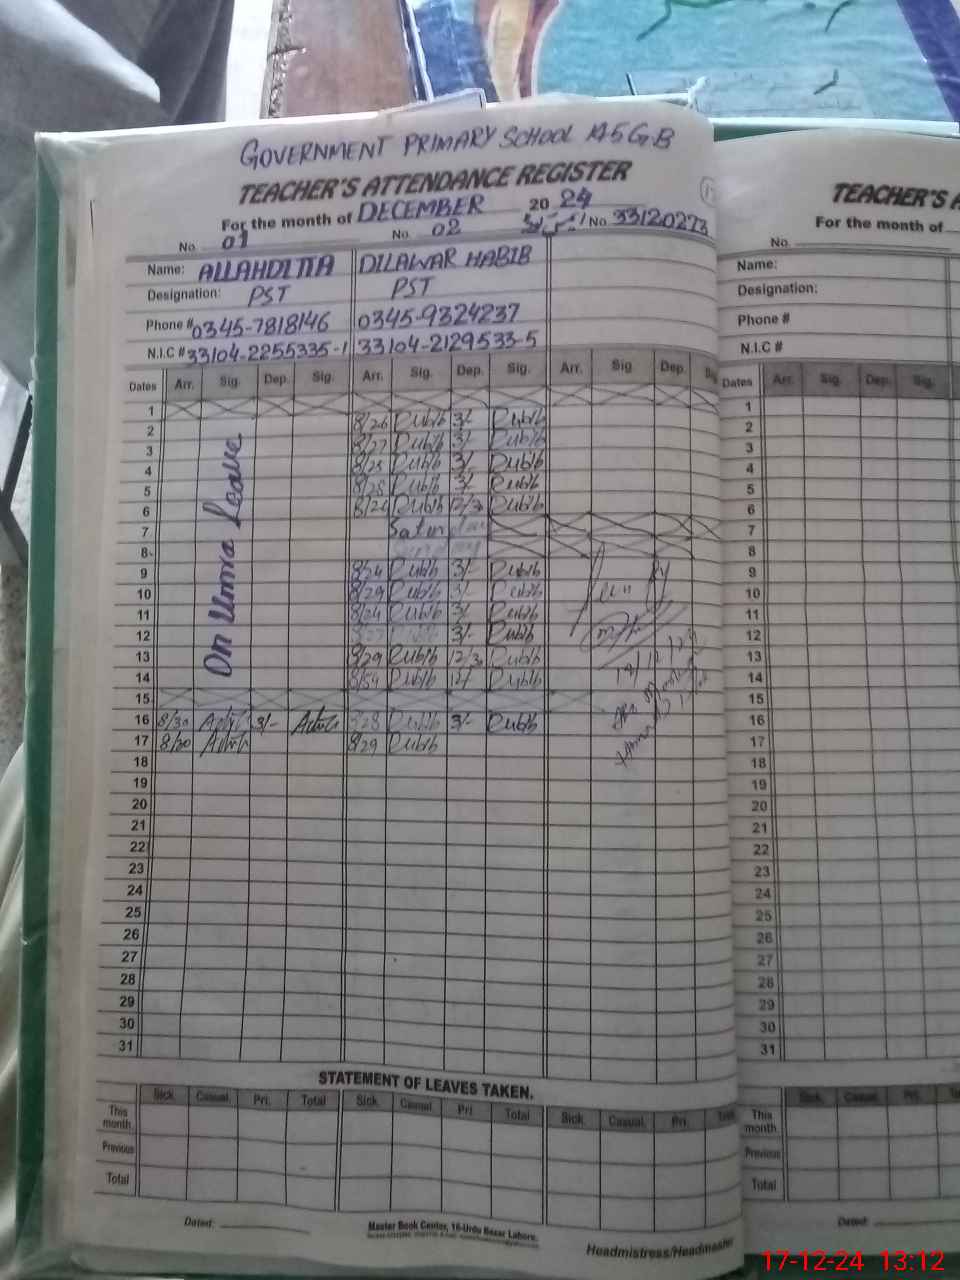 GOVERNMENT PRIMARY SCHOOL 145 GB
TEACHER'S ATTENDANCE REGISTER
For the month of DECEMBER 2024
No. 01 No. 02 No 33120273
Name: ALLAHDITTA DILAWAR HABIB
Designation: PST PST
Phone # 0345-7818146 0345-9324237
N.I.C # 33104-2255335-1 33104-2129533-5
Dates Arr. Sig. Dep. Sig. Arr. Sig. Dep. Sig. Arr. Sig Dep.
On Umra Leave
1
2 8/26 3/-
3 8/27 3/-
4 8/25 3/-
5 8/28 3/-
6 8/26 12/30
7 Saturday
8
9 8/24 3/-
10 8/29 3/-
11 8/24 3/-
12 3/-
13 8/29 12/30
14 8/24 12/-
15
16 8/30 3/- 8/28 3/-
17 8/30 8/29
18
19
20
21
22
23
24
25
26
27
28
29
30
31
STATEMENT OF LEAVES TAKEN.
Sick. Casual. Pri. Total Sick. Casual. Pri. Total Sick. Casual. Pri. Total
This month.
Previous
Total
Dated:
Master Book Center, 16-Urdu Bazar Lahore.
Headmistress/Headmaster
TEACHER'S A
For the month of
No.
Name:
Designation:
Phone #
N.I.C #
Dates Arr. Sig. Dep. Sig.
1
2
3
4
5
6
7
8
9
10
11
12
13
14
15
16
17
18
19
20
21
22
23
24
25
26
27
28
29
30
31
Sick. Casual. Pri.
This month.
Previous
Total
Dated:
17-12-24 13:12